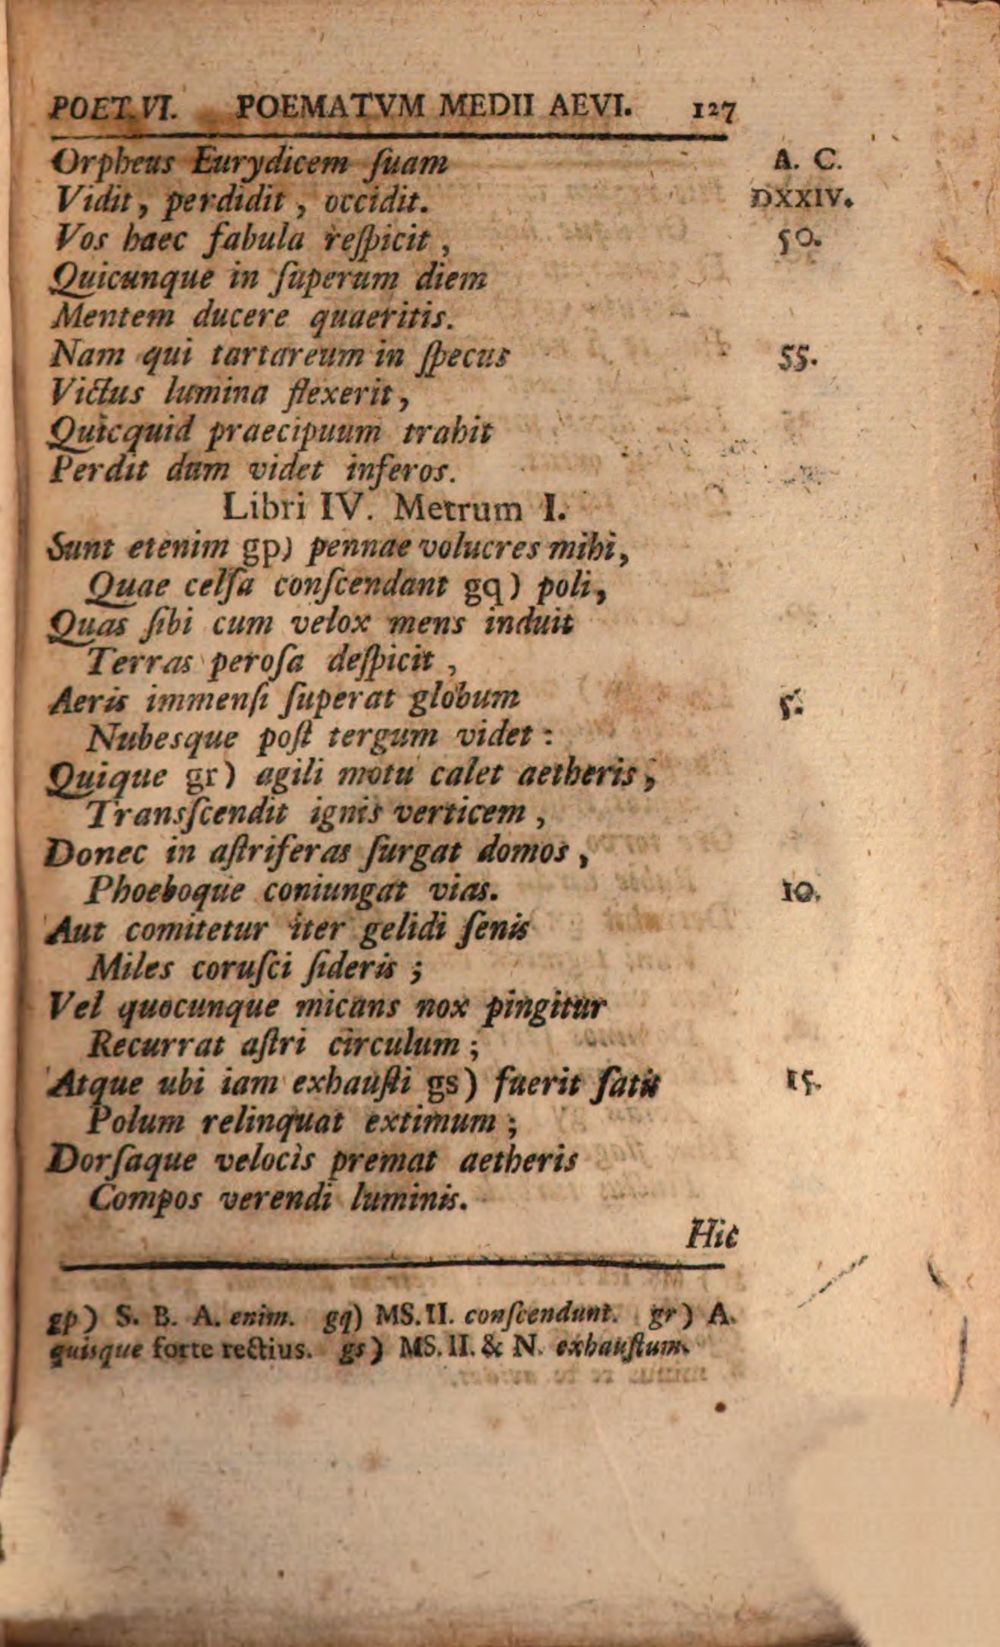 POET. VI. POEMATVM MEDII AEVI. 127
Orpheus Eurydicem ſuam A. C.
Vidit, perdidit, occidit. DXXIV.
Vos haec fabula reſpicit, 50.
Quicunque in ſuperum diem
Mentem ducere quaeritis.
Nam qui tartareum in ſpecus 55.
Victus lumina flexerit,
Quicquid praecipuum trahit
Perdit dum videt inferos.
Libri IV. Metrum I.
Sunt etenim gp) pennae volucres mihi,
Quae celſa conſcendant gq) poli,
Quas ſibi cum velox mens induit
Terras peroſa deſpicit,
Aeris immenſi ſuperat globum 5.
Nubesque poſt tergum videt:
Quique gr) agili motu calet aetheris,
Transſcendit ignis verticem,
Donec in aſtriferas ſurgat domos,
Phoeboque coniungat vias. 10.
Aut comitetur iter gelidi ſenis
Miles coruſci ſideris;
Vel quocunque micans nox pingitur
Recurrat aſtri circulum;
Atque ubi iam exhauſti gs) fuerit ſatis 15.
Polum relinquat extimum;
Dorſaque velocis premat aetheris
Compos verendi luminis.
Hic
gp) S. B. A. enim. gq) MS. II. conſcendunt. gr) A.
quisque forte rectius. gs) MS. II. & N. exhauſtum.